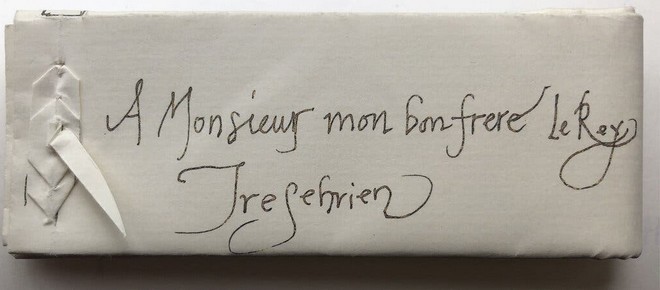 A Monsieur mon bon frere Le Roy
Treschrien